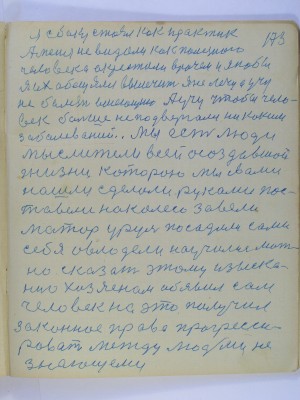 я своих ставил как практик
173
А меня не видали как полезного
человека окрестили врачом и якобы
я их обещяли вылечит я не лечу а учу
не болет
А учу чтобы чело-
век больше неподвергали ни каким
заболеваний.. Мы ест люди
мыслители всей создавшой
жизни которою мы сами
нашли сделали руками пос-
тавили на колеса завели
матор урул посадили сами
себя овлодели научились мож-
но сказат этому изыска-
нию хозяеном обявил сам
человек на это палучил
законное право прогресси-
роват между людми не
знающеми